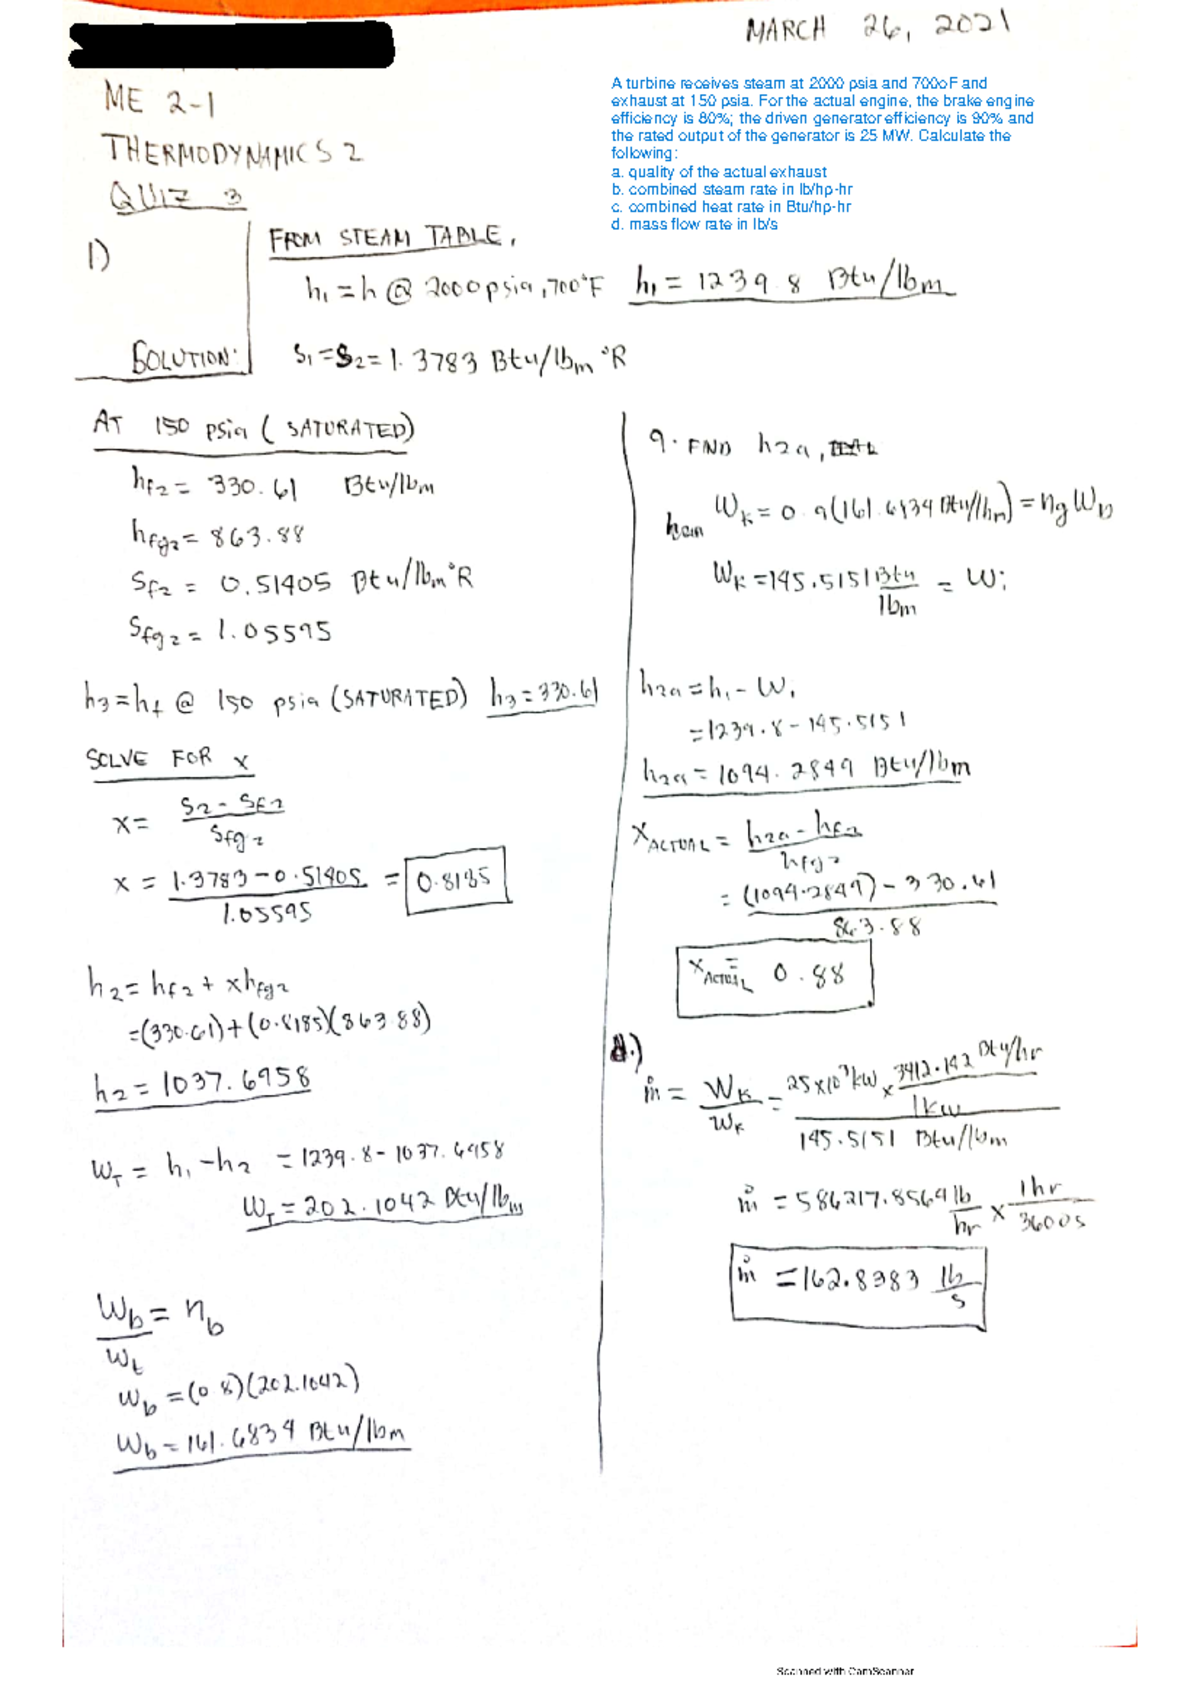 MARCH 26, 2021
ME 2-1
THERMODYNAMICS 2
QUIZ 3
A turbine receives steam at 2000 psia and 700oF and
exhaust at 150 psia. For the actual engine, the brake engine
efficiency is 80%; the driven generator efficiency is 90% and
the rated output of the generator is 25 MW. Calculate the
following:
a. quality of the actual exhaust
b. combined steam rate in lb/hp-hr
c. combined heat rate in Btu/hp-hr
d. mass flow rate in lb/s
1)
FROM STEAM TABLE,
h₁ = h @ 2000 psia, 700°F h₁ = 1239.8 Btu/lbm
SOLUTION:
S₁ = S₂ = 1.3783 Btu/lbm °R
AT 150 psia (SATURATED)
hf2 = 330.61 Btu/lbm
hfg2 = 863.88
Sf2 = 0.51405 Btu/lbm°R
Sfg2 = 1.05595
h3 = hf @ 150 psia (SATURATED) h3 = 330.61
SOLVE FOR x
x = S2 - Sf2
Sfg2
x = 1.3783 - 0.51405 = 0.8185
1.05595
h2 = hf2 + xhfg2
= (330.61) + (0.8185)(863.88)
h2 = 1037.6958
WT = h₁ - h2 = 1239.8 - 1037.6958
WT = 202.1042 Btu/lbm
Wb = nb
Wt
Wb = (0.8)(202.1042)
Wb = 161.6834 Btu/lbm
a. FIND h2a,
WK = 0.9(161.6834 Btu/lbm) = ng Wb
WK = 145.5151 Btu = Wi
lbm
h2a = h₁ - Wi
= 1239.8 - 145.5151
h2a = 1094.2849 Btu/lbm
XACTUAL = h2a - hf2
hfg2
= (1094.2849) - 330.61
863.88
XACTUAL = 0.88
d.)
ṁ = WK = 25x10³ kW x 3412.142 Btu/hr
WK
1kW
145.5151 Btu/lbm
ṁ = 586217.8564 lb x 1hr
hr 3600s
ṁ = 162.8383 lb
s
Scanned with CamScanner